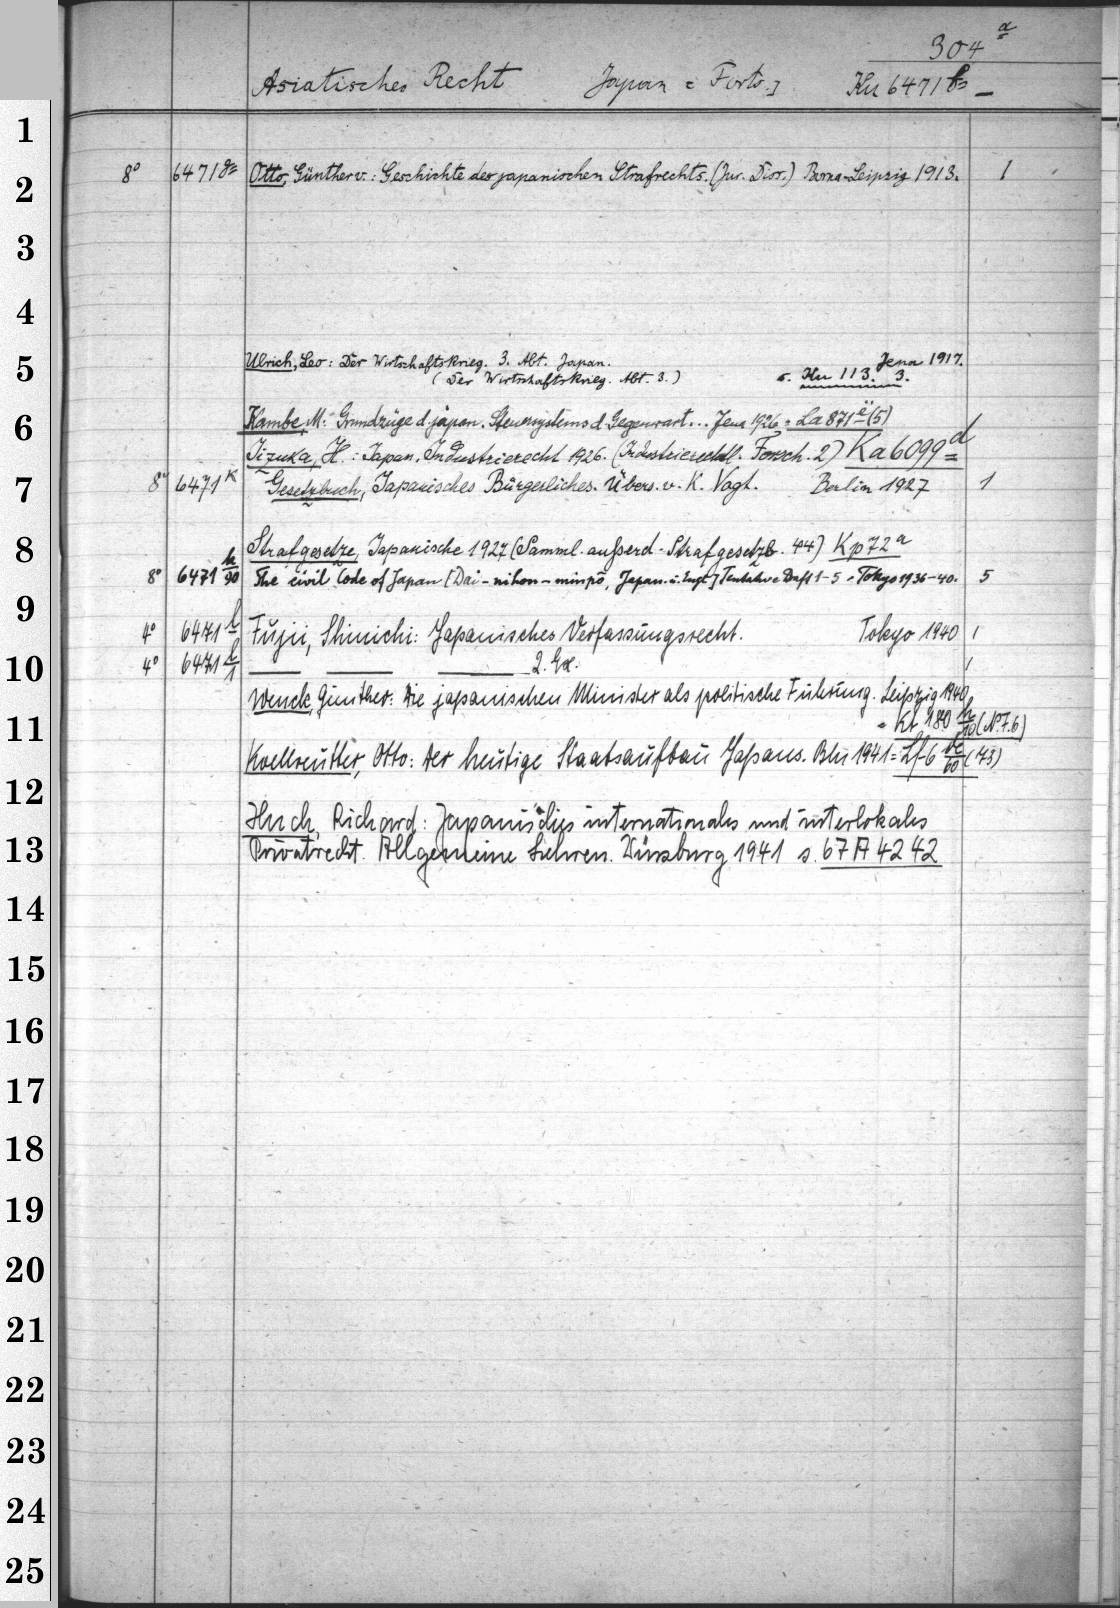 304 a
Asiatisches Recht Japan [Forts.] Ku 6471 f=
1
8° 6471 g= Otto, Günther v.: Geschichte des japanischen Strafrechts. (Jur. Diss.) Borna-Leipzig 1913. 1
2
3
4
Ulrich, Leo: Der Wirtschaftskrieg. 3. Abt. Japan. Jena 1917.
5
(Der Wirtschaftskrieg. Abt. 3.) s. Hu 113. 3.
Kambe, M.: Grundzüge d. japan. Steuersystems d. Gegenwart... Jena 1926 = La 871 ë (5) 1
6
Iizuka, H.: Japan. Industrierecht 1926. (Industrierechtl. Forsch. 2) Ka 6099 d
7
8° 6471 k Gesetzbuch, Japanisches Bürgerliches. Übers. v. K. Vogt. Berlin 1927 1
Strafgesetze, Japanische 1927 (Samml. außerd. Strafgesetzb. 44) Kp 72 a
8
8° 6471 k/90 The civil Code of Japan (Dai-nihon-minpō, Japan. u. Engl.) Tentative Draft 1-5. Tokyo 1936-40. 5
9
4° 6471 l Fujii, Shinichi: Japanisches Verfassungsrecht. Tokyo 1940 1
10
4° 6471 l/1 — — — 2. Ex. 1
Wenck, Günther: Die japanischen Minister als politische Führung. Leipzig 1940,
11
= Kt 180 h/10 (N.F.6)
Koellreutter, Otto: Der heutige Staatsaufbau Japans. Bln 1941 = Lf 6 be/60 (43)
12
Huch, Richard: Japanisches internationales und interlokales
13
Privatrecht. Allgemeine Lehren. Würzburg 1941 s. 67 A 4242
14
15
16
17
18
19
20
21
22
23
24
25